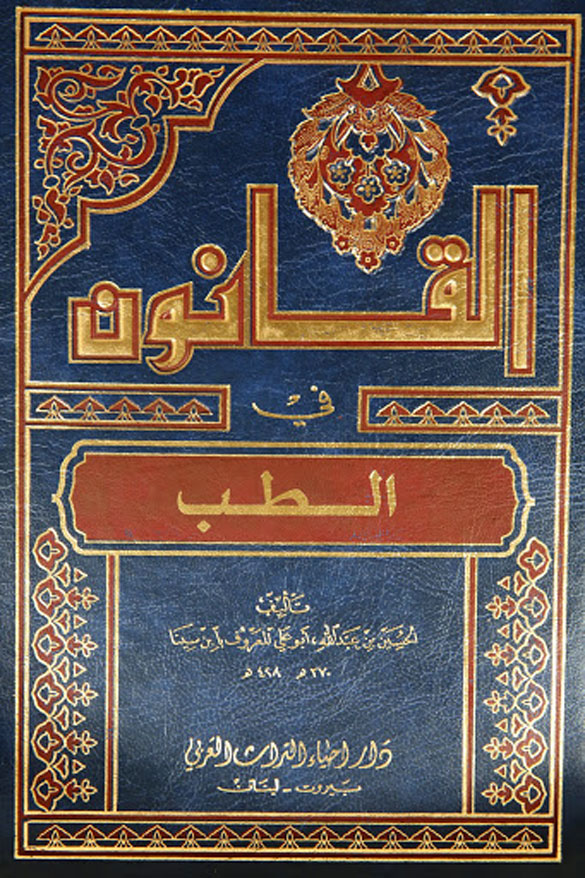 القانون
في
الطب
تأليف
الحسين بن عبدالله، أبو علي المعروف بابن سينا
٣٧٠ هـ ٤٢٨ هـ
دار احياء التراث العربي
بيروت - لبنان